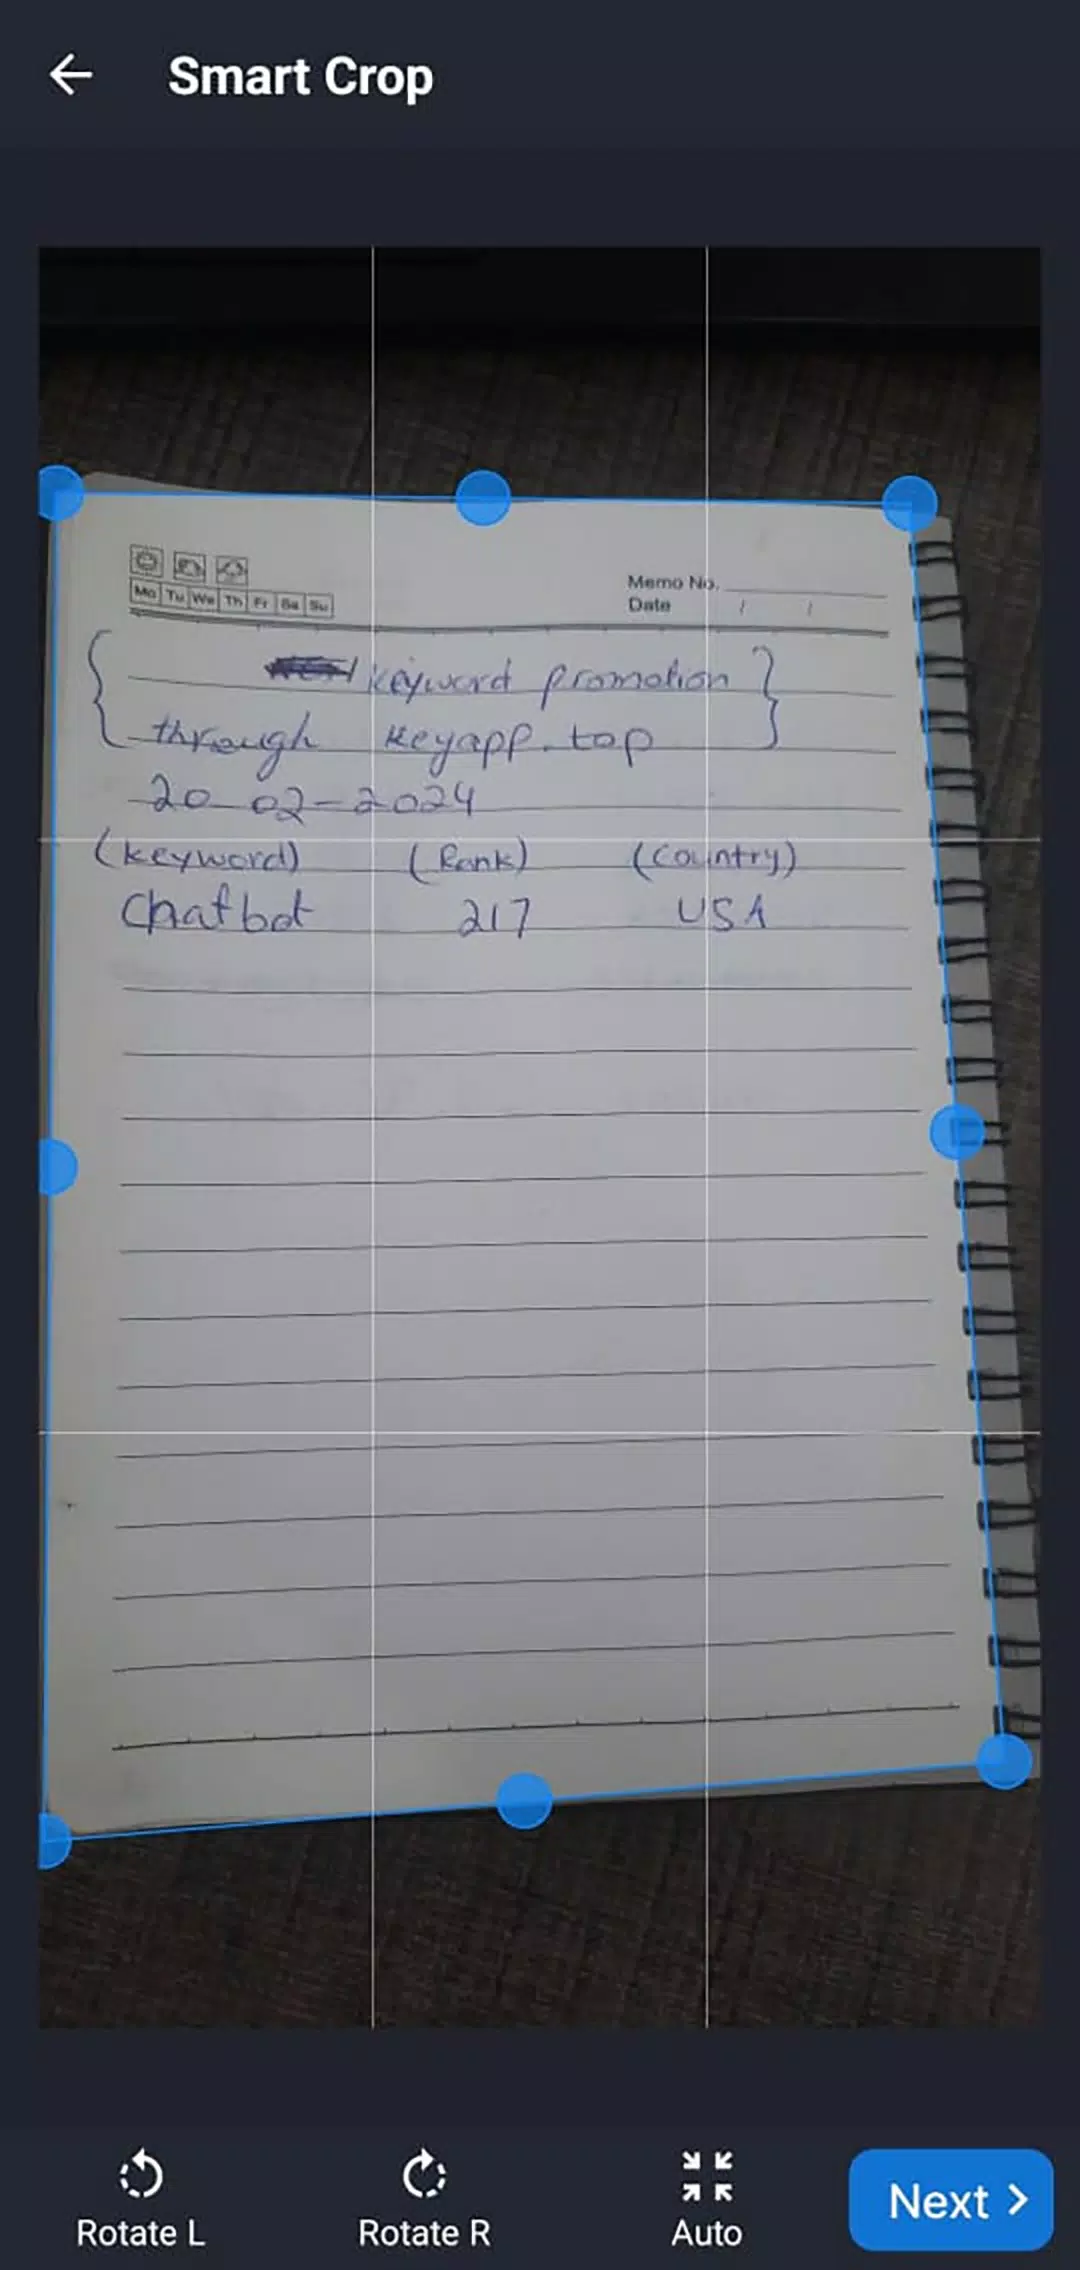 Smart Crop
Mo Tu We Th Fr Sa Su
Memo No.
Date / /
{ keyword promotion }
through keyapp.top
20-02-2024
(keyword) (Rank) (Country)
Chatbot 217 USA
Rotate L Rotate R Auto Next